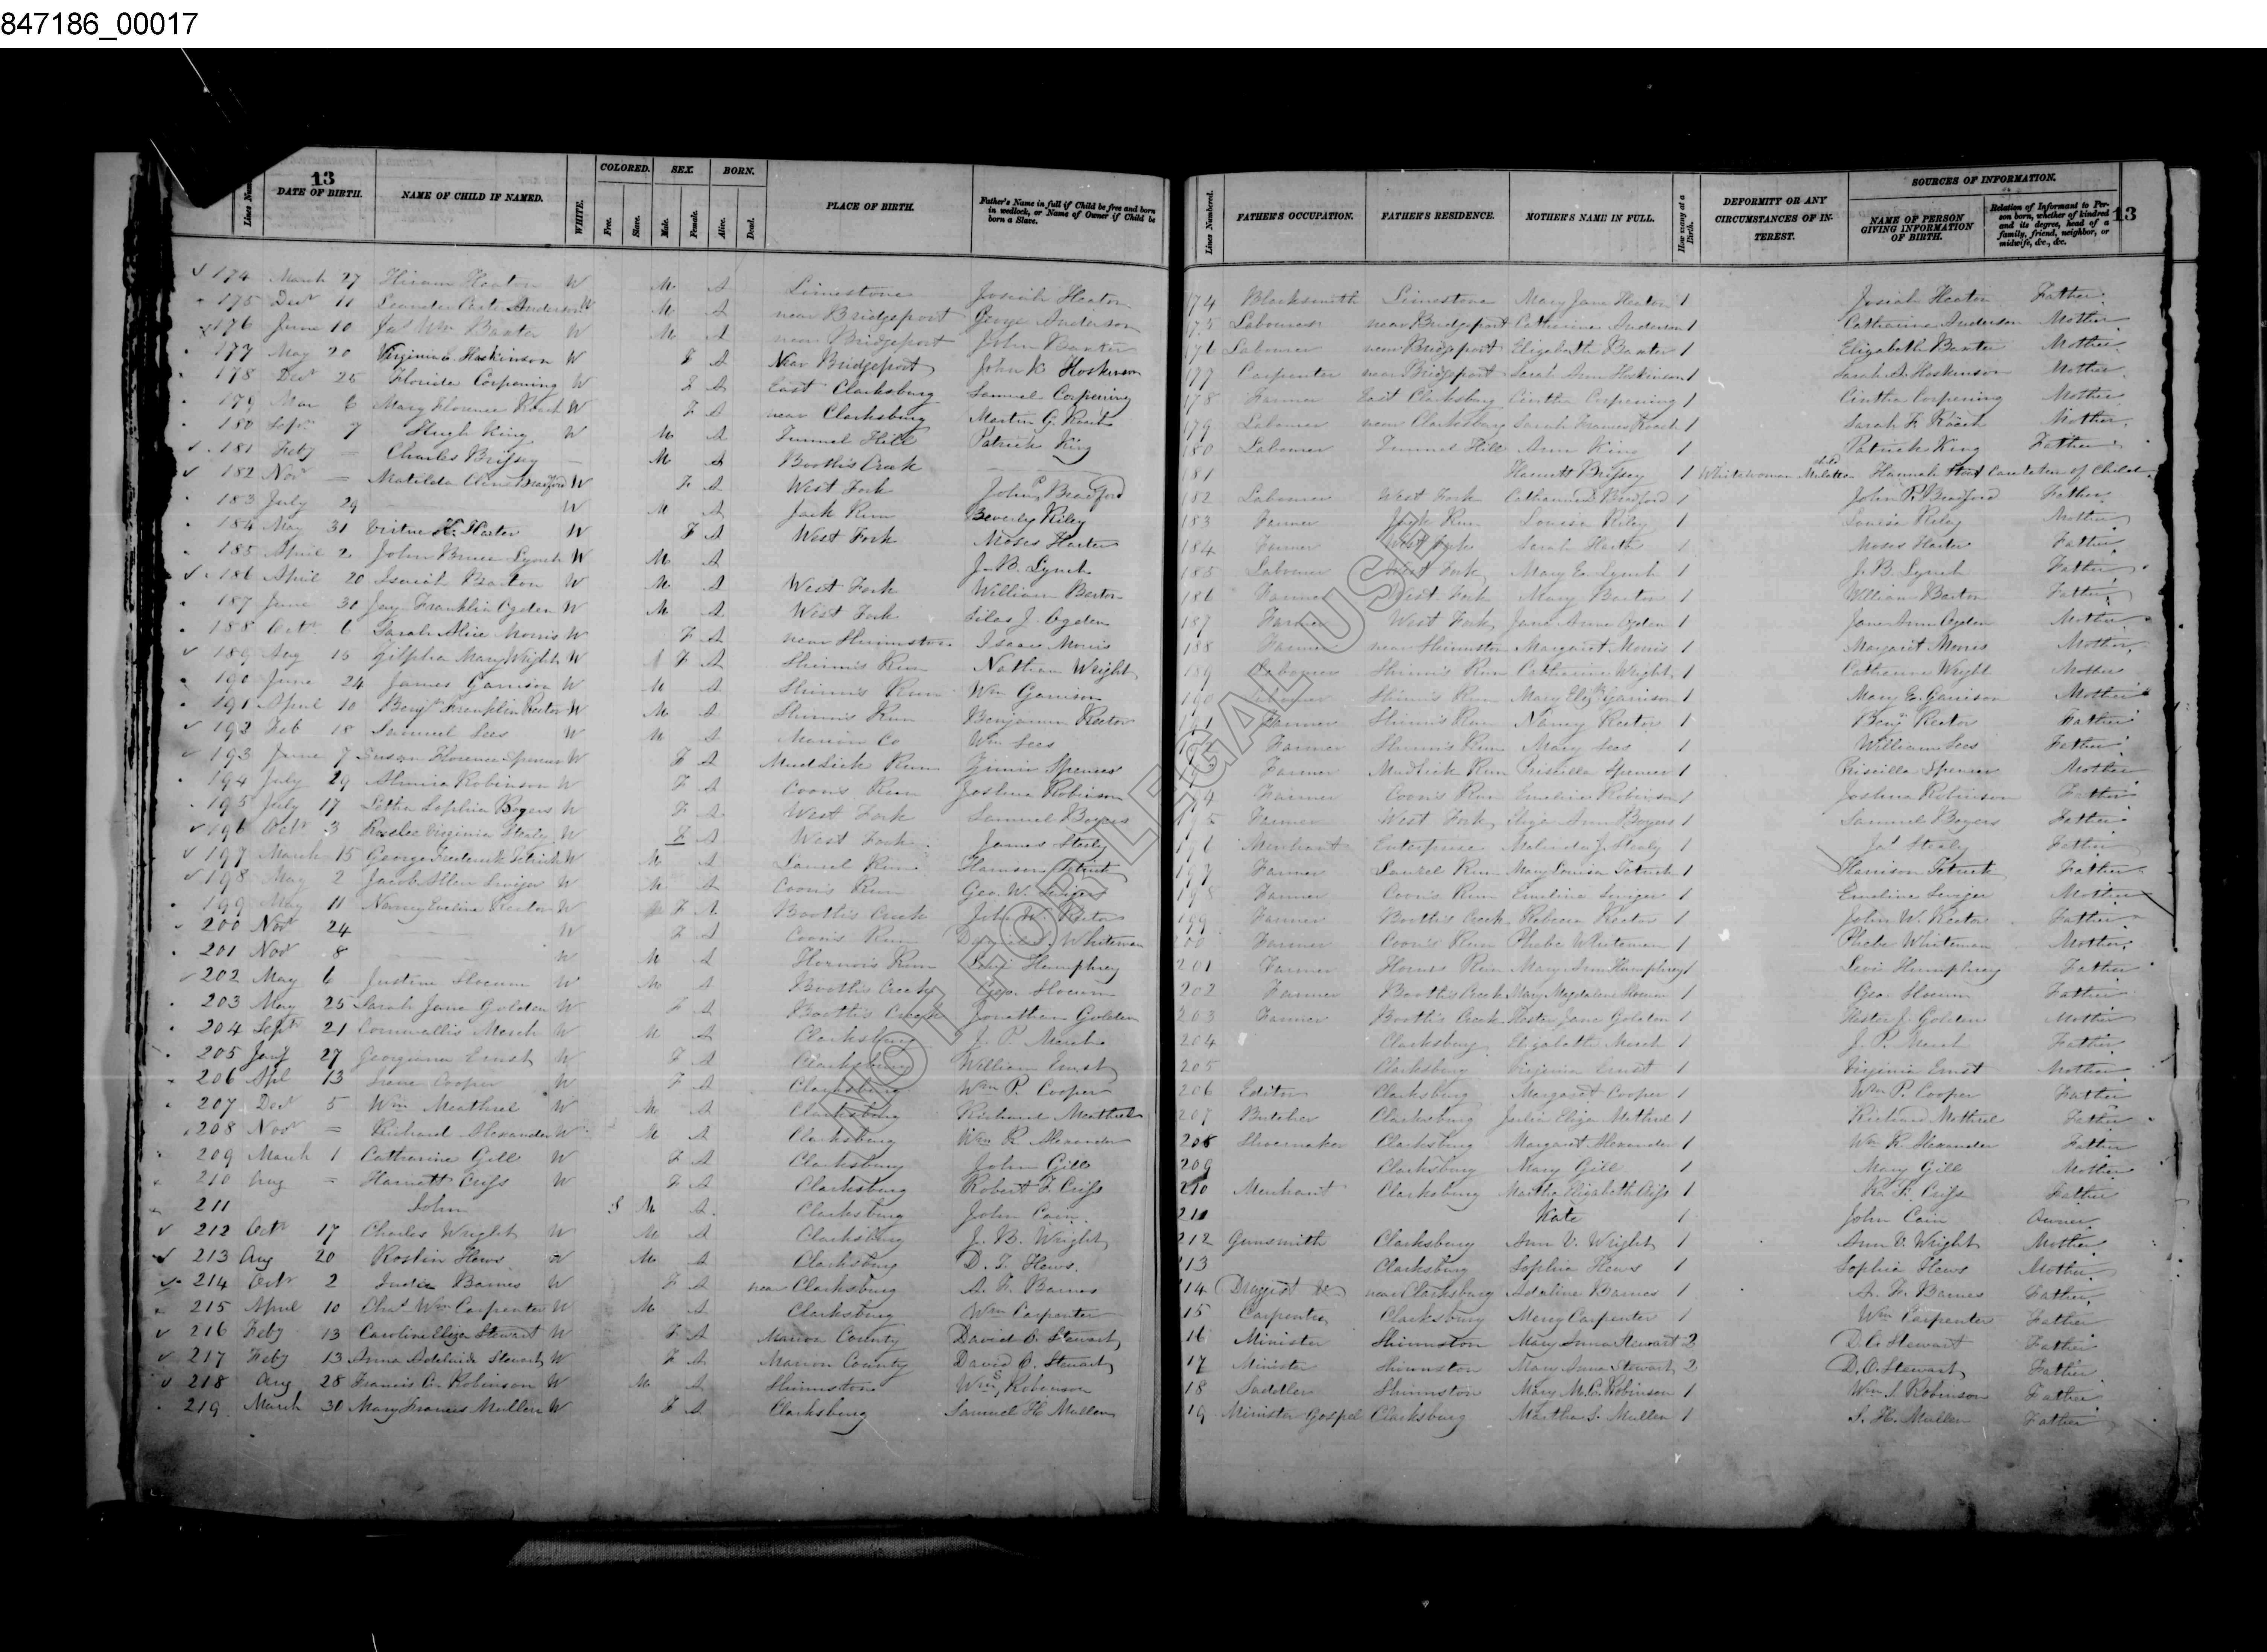 847186_00017
13
Lines Num
DATE OF BIRTH.
NAME OF CHILD IF NAMED.
WHITE.
COLORED.
Free.
Slave.
SEX.
Male.
Female.
BORN.
Alive.
Dead.
PLACE OF BIRTH.
Father's Name in full if Child be free and born in wedlock, or Name of Owner if Child be born a Slave.
Lines Numbered.
FATHER'S OCCUPATION.
FATHER'S RESIDENCE.
MOTHER'S NAME IN FULL.
How many at a Birth.
DEFORMITY OR ANY CIRCUMSTANCES OF INTEREST.
SOURCES OF INFORMATION.
NAME OF PERSON GIVING INFORMATION OF BIRTH.
Relation of Informant to Person born, whether of kindred and its degree, head of a family, friend, neighbor, or midwife, &c., &c.
13
174 March 27 Hiram Heaton W M A Limestone Josiah Heaton 174 Blacksmith Limestone Mary Jane Heaton 1 Josiah Heaton Father
175 Decr 11 Leander Anderson W M A near Bridgeport George Anderson 175 Labourer near Bridgeport Catharine Anderson 1 Catharine Anderson Mother
176 June 10 Jas Wm Baxter W M A near Bridgeport John Baxter 176 Labourer near Bridgeport Elizabeth Baxter 1 Elizabeth Baxter Mother
177 May 20 Virginia E. Hoskinson W F A Near Bridgeport John K Hoskinson 177 Carpenter near Bridgeport Sarah Ann Hoskinson 1 Sarah A. Hoskinson Mother
178 Decr 25 Florida Corpening W F A East Clarksburg Samuel Corpening 178 Farmer East Clarksburg Cintha Corpening 1 Cintha Corpening Mother
179 Mar 6 Mary Florence Roach W F A near Clarksburg Martin G. Roach 179 Labourer near Clarksburg Sarah Frances Roach 1 Sarah F. Roach Mother
180 Sepr 7 Hugh King W M A Tunnel Hill Patrick King 180 Labourer Tunnel Hill Ann King 1 Patrick King Father
181 Feby = Charles M A Booth's Creek 181 Harriett 1 White woman Mulatto child Hannah of Child
182 Novr = Matilda Bradford W F A West Fork John P Bradford 182 Labourer West Fork Catharine D Bradford 1 John P. Bradford Father
183 July 29 W M A Jack Run Beverly Riley 183 Farmer Jack Run Louisa Riley 1 Louisa Riley Mother
184 May 31 Virtue H. Harter W F A West Fork Moses Harter 184 Farmer West Fork Sarah Harter 1 Moses Harter Father
185 April 2 John Bruce Lynch W M A J. B. Lynch 185 Labourer West Fork Mary E. Lynch 1 J. B. Lynch Father
186 April 20 Isaiah Barton W M A West Fork William Barton 186 Farmer West Fork Mary Barton 1 William Barton Father
187 June 30 Jay Franklin Ogden W M A West Fork Silas J. Ogden 187 Farmer West Fork Jane Ann Ogden 1 Jane Ann Ogden Mother
188 Octr 6 Sarah Alice Morris W F A near Shinnston Isaac Morris 188 Farmer near Shinnston Margaret Morris 1 Margaret Morris Mother
189 Aug 15 Zilpha Mary Wright W F A Shinn's Run Nathan Wright 189 Labourer Shinn's Run Catharine Wright 1 Catharine Wright Mother
190 June 24 James Garrison W M A Shinn's Run Wm Garrison 190 Shinn's Run Mary Elizth Garrison 1 Mary E. Garrison Mother
191 April 10 Benjn Franklin Rector W M A Shinn's Run Benjamin Rector 191 Farmer Shinn's Run Nancy Rector 1 Benjn Rector Father
192 Feb 18 Samuel Sees W M A Marion Co Wm Sees Farmer Shinn's Run Mary Sees 1 William Sees Father
193 June 7 Susan Florence Spencer W F A Mudlick Run Spencer Farmer Mudlick Run Priscilla Spencer 1 Priscilla Spencer Mother
194 July 29 Almira Robinson W F A Coon's Run Joshua Robinson 94 Farmer Coon's Run Emeline Robinson 1 Joshua Robinson Father
195 July 17 Letha Sophia Boyers W F A West Fork Samuel Boyers Farmer West Fork Eliza Ann Boyers 1 Samuel Boyers Father
196 Octr 3 Virginia Stealy W F A West Fork James Stealy Merchant Enterprise Malinda J. Stealy 1 Jas Stealy Father
197 March 15 George Frederick Tetrick W M A Laurel Run Harrison Tetrick 197 Farmer Laurel Run Mary Louisa Tetrick 1 Harrison Tetrick Father
198 May 2 Jacob Allen Swiger W M A Coon's Run Geo. W. Swiger 198 Farmer Coon's Run Emeline Swiger 1 Emeline Swiger Mother
199 May 11 Nancy Eveline Rector W F A Booth's Creek John W. Rector 199 Farmer Booth's Creek Rebecca Rector 1 John W. Rector Father
200 Novr 24 W F A Coon's Run Whiteman 200 Farmer Coon's Run Phebe Whiteman 1 Phebe Whiteman Mother
201 Novr 8 W M A Run Levi Humphrey 201 Farmer Run Mary Ann Humphrey 1 Levi Humphrey Father
202 May 6 Justine Slocum W M A Booth's Creek Geo. Slocum 202 Farmer Booth's Creek Mary Magdalene Slocum 1 Geo Slocum Father
203 May 25 Sarah Jane Golden W F A Booth's Creek Jonathan Golden 203 Farmer Booth's Creek Hester Jane Golden 1 Hester J. Golden Mother
204 Septr 21 Cornwallis March W M A Clarksburg J. P. March 204 Clarksburg Elizabeth March 1 J. P. March Father
205 Jany 27 Georgiana Ernst W F A Clarksburg William Ernst 205 Clarksburg Virginia Ernst 1 Virginia Ernst Mother
206 Apl 13 Irene Cooper W F A Clarksburg Wm P. Cooper 206 Editor Clarksburg Margaret Cooper 1 Wm P. Cooper Father
207 Decr 5 Wm Meathrel W M A Clarksburg Richard Meathrel 207 Butcher Clarksburg Julia Eliza Methrel 1 Richard Methrel Father
208 Novr = Richard Alexander W M A Clarksburg Wm R. Alexander 208 Shoemaker Clarksburg Margaret Alexander 1 Wm R Alexander Father
209 March 1 Catharine Gill W F A Clarksburg John Gill 209 Clarksburg Mary Gill 1 Mary Gill Mother
210 Aug = Harriett Criss W F A Clarksburg Robert F. Criss 210 Merchant Clarksburg Martha Elizabeth Criss 1 Ro. F. Criss Father
211 John S M A Clarksburg John Cain 211 Kate 1 John Cain Owner
212 Octr 17 Charles Wright W M A Clarksburg J. B. Wright 212 Gunsmith Clarksburg Ann V. Wright 1 Ann V. Wright Mother
213 Aug 20 Rostin Hews W M A Clarksburg D. T. Hews. 13 Clarksburg Sophia Hews 1 Sophia Hews Mother
214 Octr 2 India Barnes W F A near Clarksburg A. F. Barnes 14 Druggist &c near Clarksburg Adaline Barnes 1 A. F. Barnes Father
215 April 10 Chas Wm Carpenter W M A Clarksburg Wm Carpenter 15 Carpenter Clarksburg Mercy Carpenter 1 Wm Carpenter Father
216 Feby 13 Caroline Eliza Stewart W F A Marion County David O. Stewart 16 Minister Shinnston Mary Anna Stewart 2 D. O. Stewart Father
217 Feby 13 Anna Adelaide Stewart W F A Marion County David O. Stewart 17 Minister Shinnston Mary Anna Stewart 2 D. O. Stewart Father
218 Aug 28 Francis C. Robinson W M A Shinnston Wm S Robinson 18 Saddler Shinnston Mary M. C. Robinson 1 Wm S Robinson Father
219 March 30 Mary Frances Mullen W F A Clarksburg Samuel H Mullen 19 Minister Gospel Clarksburg Martha S. Mullen 1 S. H. Mullen Father
NOT FOR LEGAL USE